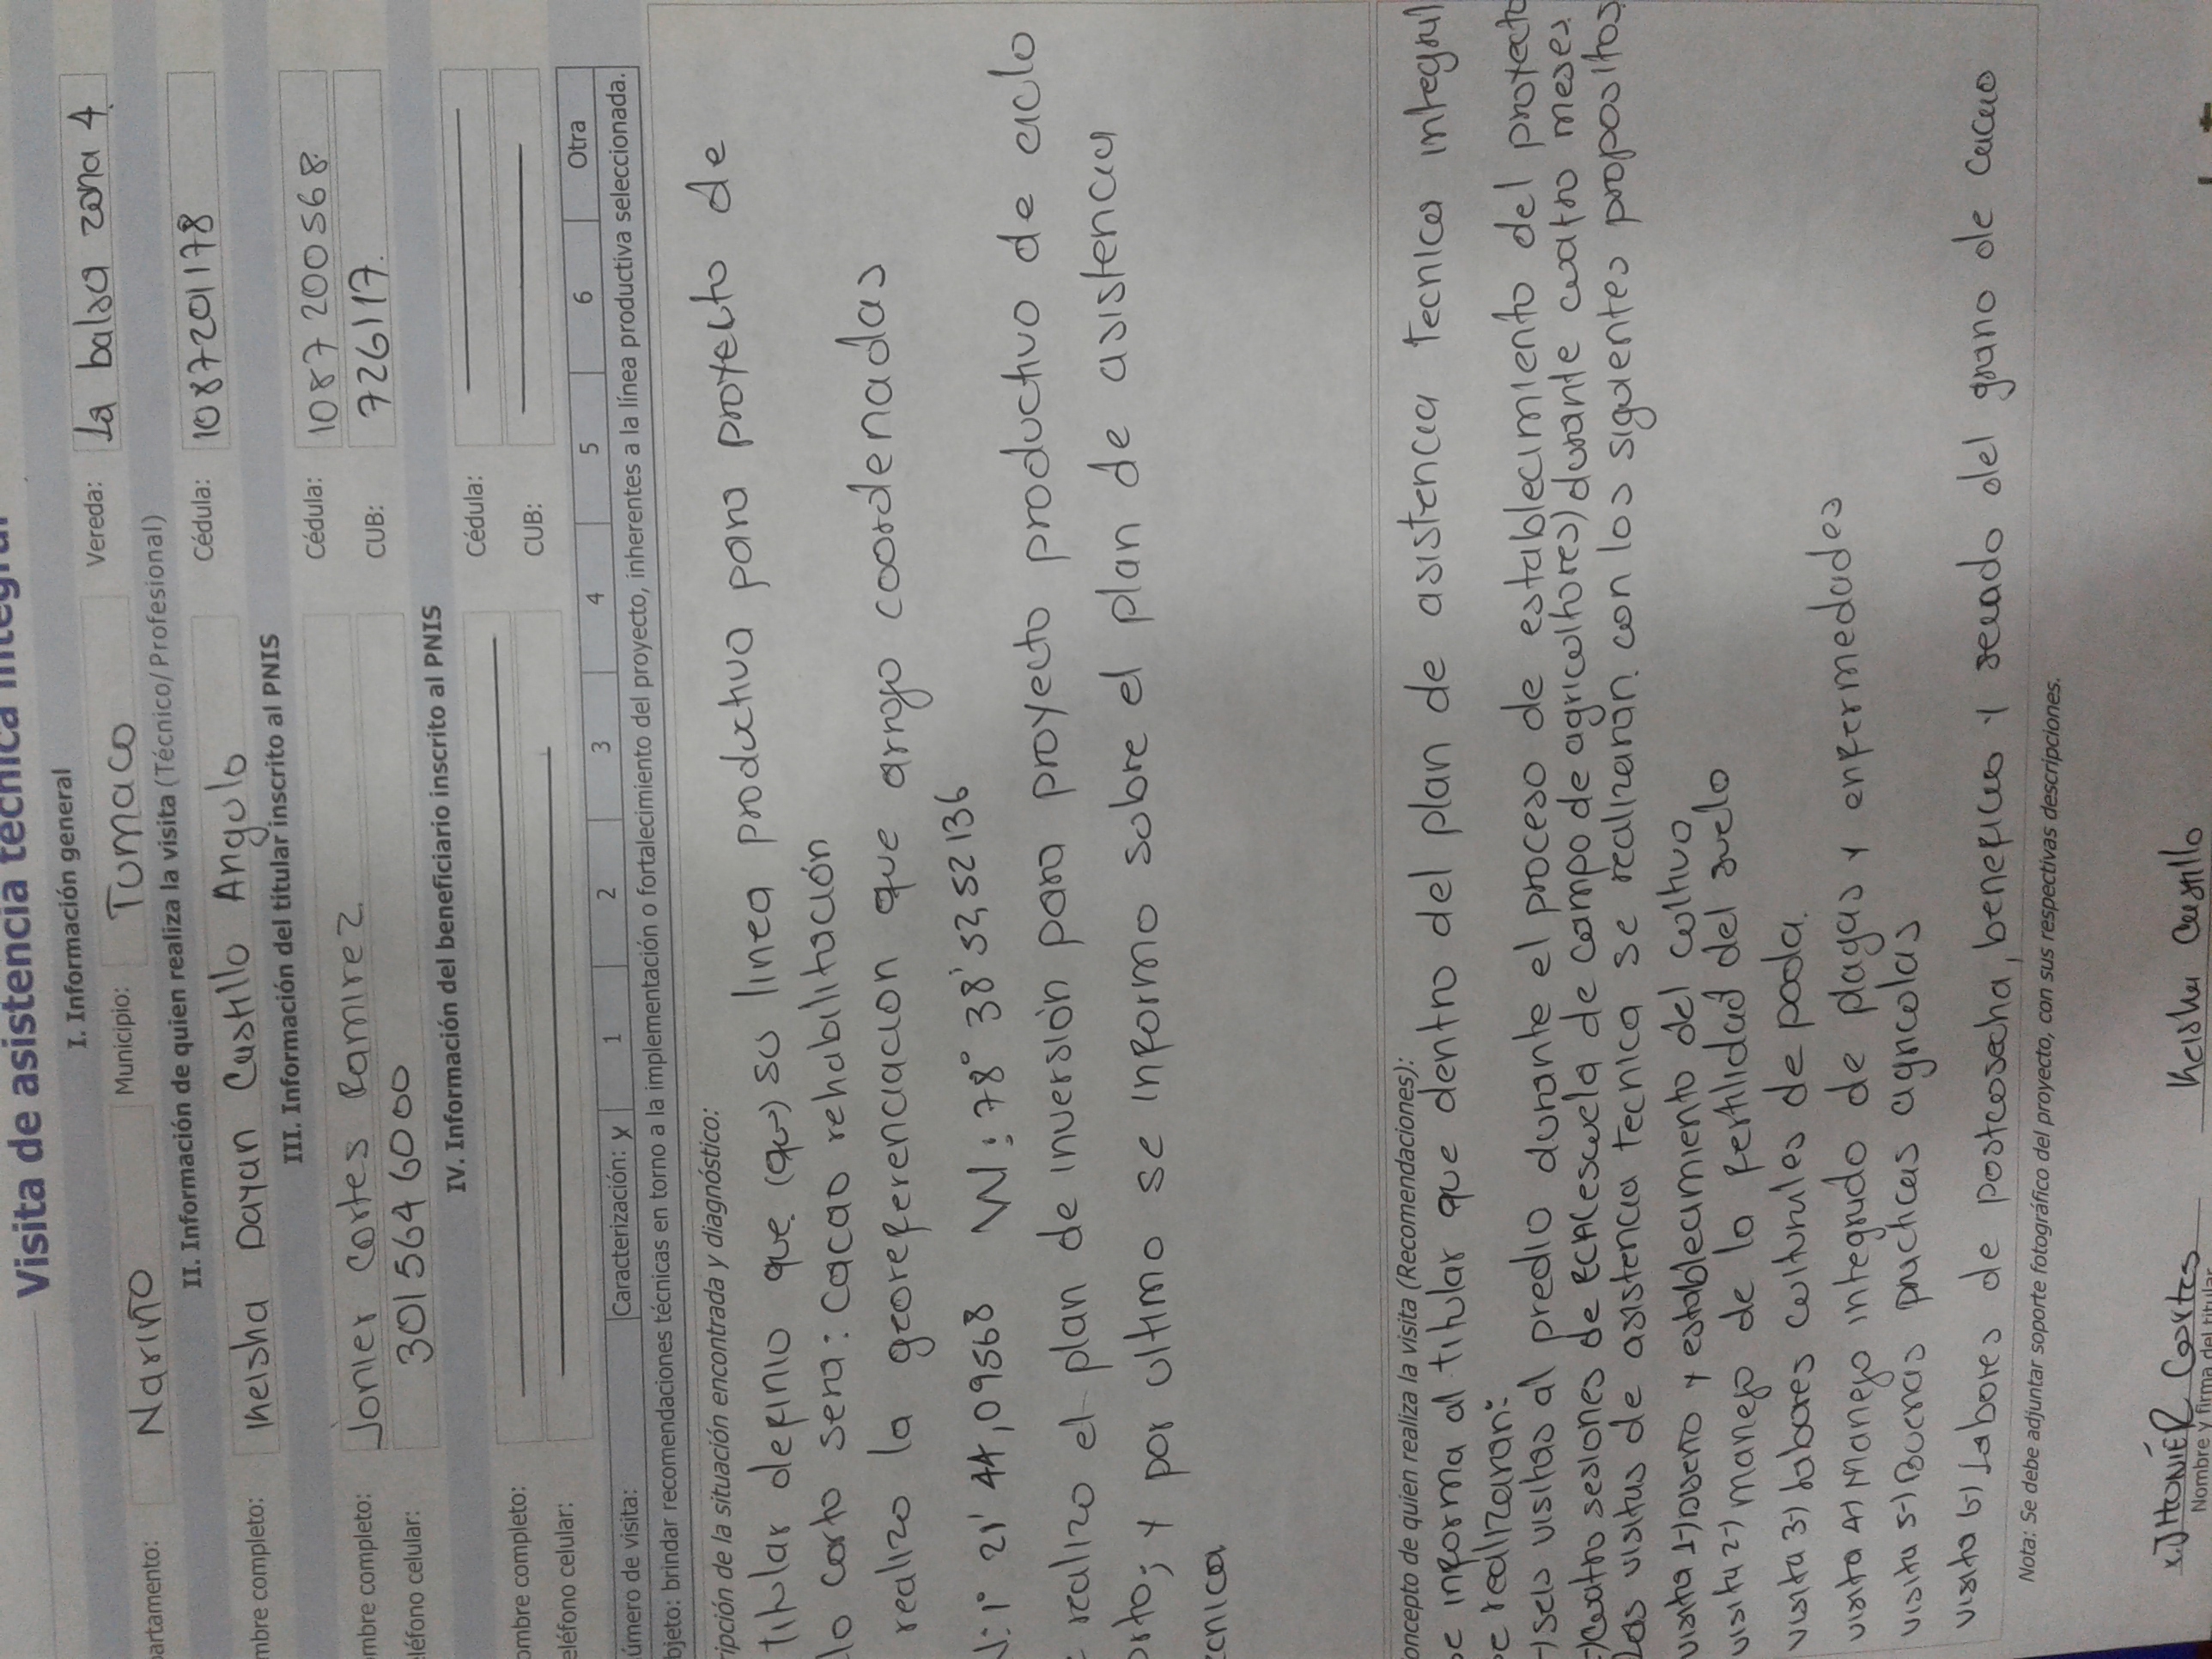 Visita de asistencia técnica integral
I. Información general
partamento: Nariño Municipio: Tumaco Vereda: La balsa zona 4.
II. Información de quien realiza la visita (Técnico/ Profesional)
mbre completo: Kelsha Dayan Castillo Angulo Cédula: 1087201178
III. Información del titular inscrito al PNIS
ombre completo: Jonier Cortes Ramirez. Cédula: 1087200568
eléfono celular: 3015646000 CUB: 726117.
IV. Información del beneficiario inscrito al PNIS
ombre completo: Cédula:
eléfono celular: CUB:
úmero de visita: Caracterización: X 1 2 3 4 5 6 Otra
bjeto: brindar recomendaciones técnicas en torno a la implementación o fortalecimiento del proyecto, inherentes a la línea productiva seleccionada.
ripción de la situación encontrada y diagnóstico:
titular definio que (que) su linea productiva para proyecto de
lo corto sera: cacao rehabilitación
realizo la georeferenciacion que arrojo coordenadas
N: 1° 21' 44,09568 W: 78° 38' 52,52136
realizo el plan de inversión para proyecto productivo de ciclo
orto; y por ultimo se informo sobre el plan de asistencia
ecnica
oncepto de quien realiza la visita (Recomendaciones):
se informa al titular que dentro del plan de asistencia tecnica integral
se realizaran:
-) Seis visitas al predio durante el proceso de establecimiento del proyecto
-) Cuatro sesiones de ECA(escuela de campo de agricultores) durante cuatro meses
Las visitas de asistencia tecnica se realizaran con los siguientes propositos
visita 1-) Diseño y establecimiento del cultivo
visita 2-) manejo de la fertilidad del suelo
visita 3-) labores culturales de poda.
visita 4-) Manejo integrado de plagas y enfermedades
visita 5-) Buenas practicas agricolas
visita 6-) Labores de postcosecha, beneficio y secado del grano de cacao
Nota: Se debe adjuntar soporte fotográfico del proyecto, con sus respectivas descripciones.
x. JHONIER Cortes Kelsha Castillo
Nombre y firma del titular